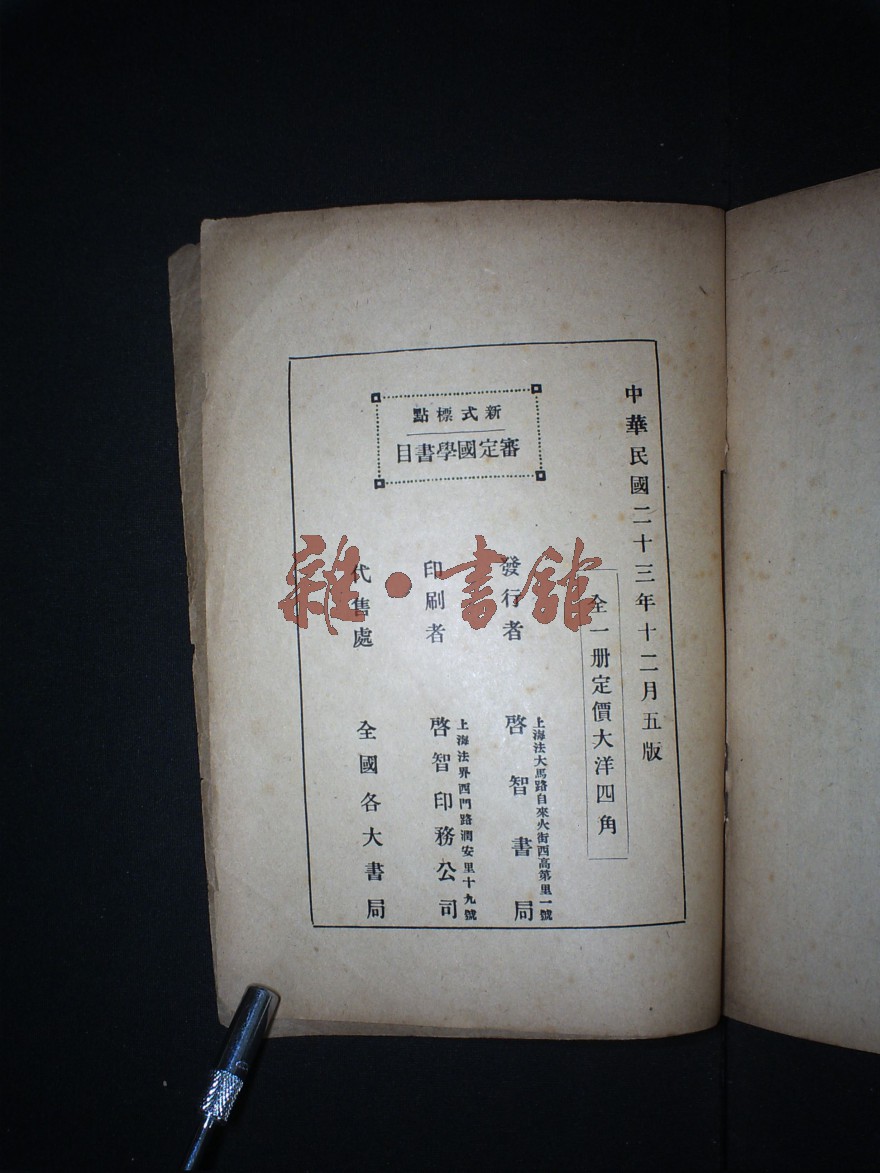 中華民國二十三年十二月五版
全一册定價大洋四角
新式標點
審定國學書目
發行者
上海法大馬路自來火街西高第里一號
啓智書局
印刷者
上海法界西門路潤安里十九號
啓智印務公司
代售處
全國各大書局
雜·書館